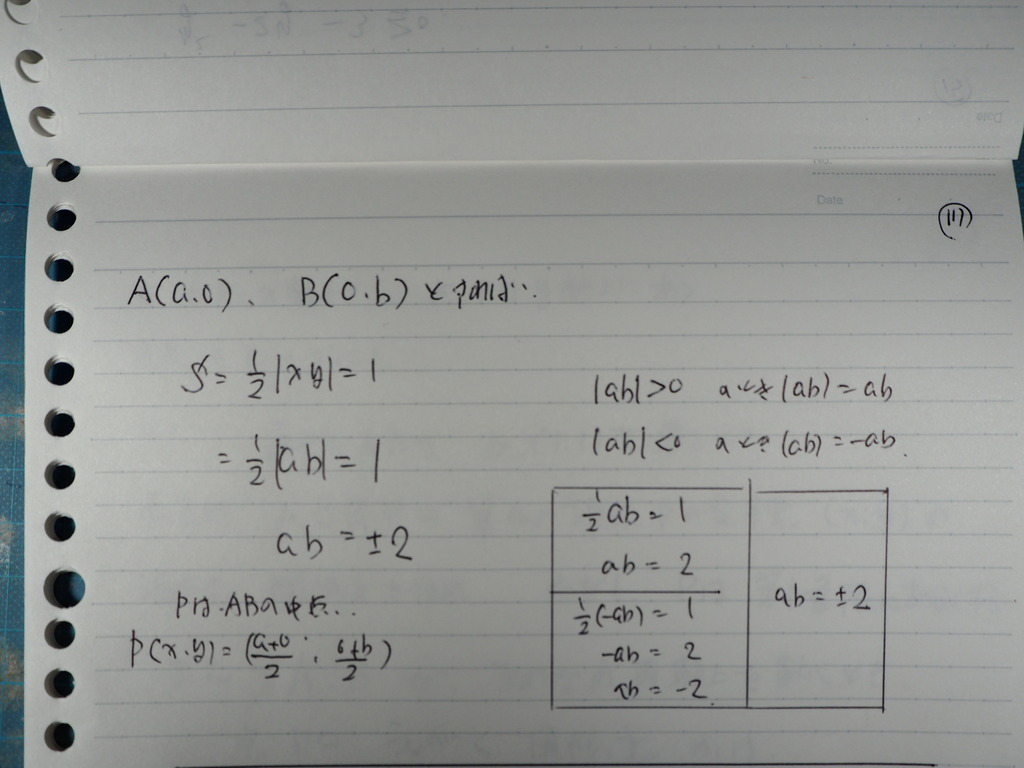 No.
Date
(17)
A(a.0)、 B(0.b) とすれば…
S = 1/2 |xy| = 1
= 1/2 |ab| = 1
ab = ±2
Pは.ABの中点...
P(x.y) = (a+0/2 . 0+b/2)
|ab|>0 のとき (ab) = ab
|ab|<0 のとき (ab) = -ab.
1/2 ab = 1
ab = 2
1/2(-ab) = 1
-ab = 2
ab = -2.
ab = ±2